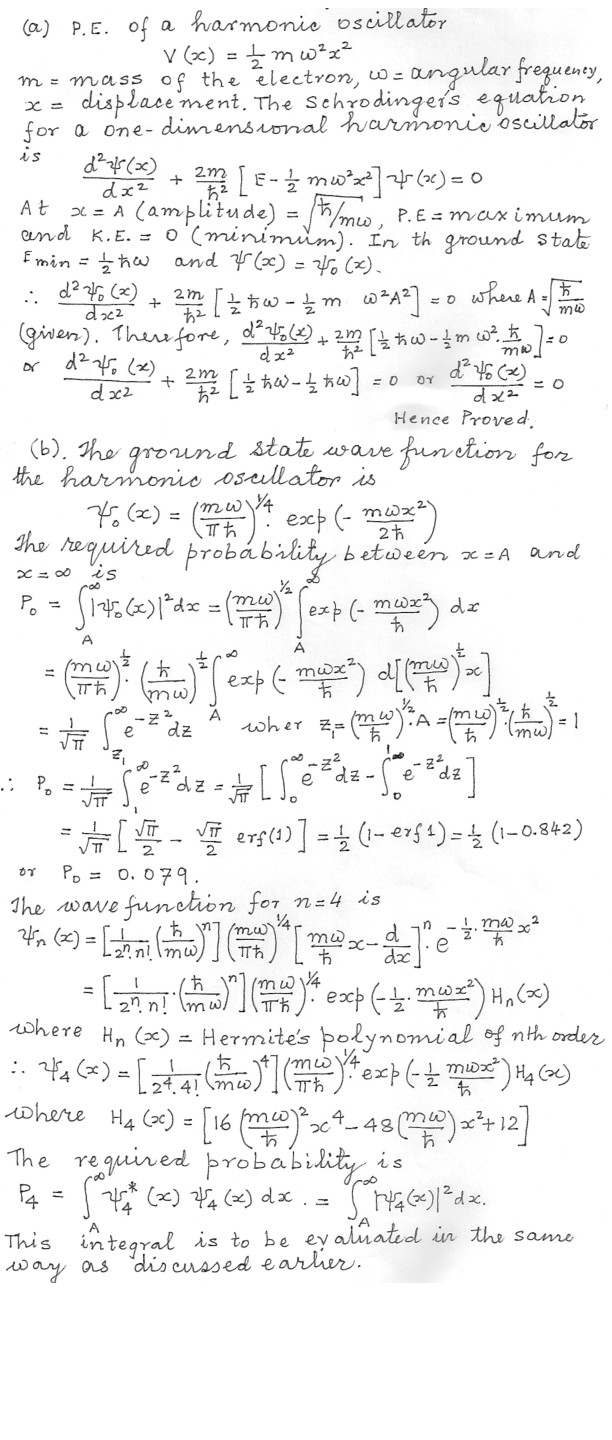 (a) P.E. of a harmonic oscillator
V(x) = 1/2 m ω²x²
m = mass of the electron, ω = angular frequency,
x = displacement. The Schrodinger's equation
for a one-dimensional harmonic oscillator
is d²ψ(x)/dx² + 2m/ħ² [E - 1/2 mω²x²] ψ(x) = 0
At x = A (amplitude) = √(ħ/mω), P.E = maximum
and K.E. = 0 (minimum). In th ground state
Emin = 1/2 ħω and ψ(x) = ψ₀(x).
∴ d²ψ₀(x)/dx² + 2m/ħ² [1/2 ħω - 1/2 m ω²A²] = 0 where A = √(ħ/mω)
(given). Therefore, d²ψ₀(x)/dx² + 2m/ħ² [1/2 ħω - 1/2 m ω². ħ/mω] = 0
or d²ψ₀(x)/dx² + 2m/ħ² [1/2 ħω - 1/2 ħω] = 0 or d²ψ₀(x)/dx² = 0
Hence Proved.
(b). The ground state wave function for
the harmonic oscillator is
ψ₀(x) = (mω/πħ)^1/4. exp(- mωx²/2ħ)
The required probability between x = A and
x = ∞ is
P₀ = ∫_A^∞ |ψ₀(x)|² dx = (mω/πħ)^1/2 ∫_A^∞ exp(- mωx²/ħ) dx
= (mω/πħ)^1/2. (ħ/mω)^1/2 ∫_A^∞ exp(- mωx²/ħ) d[(mω/ħ)^1/2 x]
= 1/√π ∫_z₁^∞ e^-z² dz wher z₁ = (mω/ħ)^1/2. A = (mω/ħ)^1/2. (ħ/mω)^1/2 = 1
∴ P₀ = 1/√π ∫_1^∞ e^-z² dz = 1/√π [∫_0^∞ e^-z² dz - ∫_0^1 e^-z² dz]
= 1/√π [√π/2 - √π/2 erf(1)] = 1/2 (1 - erf 1) = 1/2 (1 - 0.842)
or P₀ = 0.079.
The wave function for n = 4 is
ψn(x) = [1/2ⁿ.n! (ħ/mω)ⁿ] (mω/πħ)^1/4 [mω/ħ x - d/dx]ⁿ. e^(-1/2. mω/ħ x²)
= [1/2ⁿ.n! . (ħ/mω)ⁿ] (mω/πħ)^1/4. exp(-1/2. mωx²/ħ) Hn(x)
where Hn(x) = Hermite's polynomial of nth order
∴ ψ₄(x) = [1/2⁴.4! (ħ/mω)⁴] (mω/πħ)^1/4. exp(-1/2 mωx²/ħ) H₄(x)
where H₄(x) = [16 (mω/ħ)² x⁴ - 48 (mω/ħ) x² + 12]
The required probability is
P₄ = ∫_A^∞ ψ₄*(x) ψ₄(x) dx . = ∫_A^∞ |ψ₄(x)|² dx.
This integral is to be evaluated in the same
way as discussed earlier.